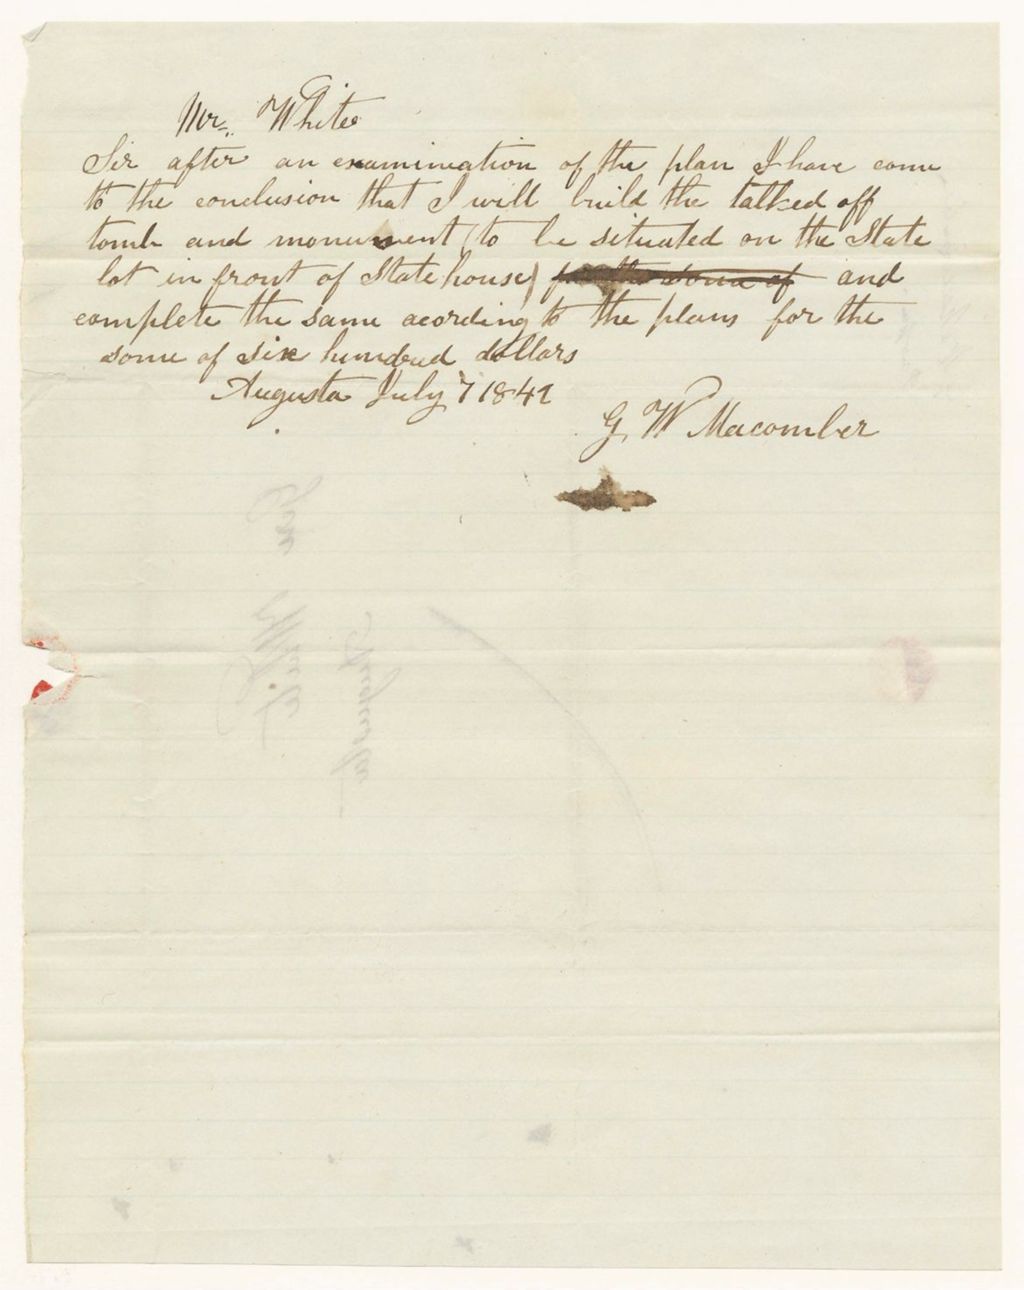 Mr. White
Sir after an examination of the plan I have come
to the conclusion that I will build the talked off
tomb and monument (to be situated on the State
lot in front of State house) for the some of and
complete the same acording to the plans for the
some of six hundred dollars
Augusta July 7 1842
G. W Macomber